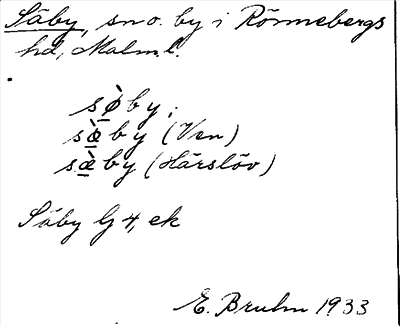 Säby, sn o. by i Rönnebergs
hd, Malm.l.
sø̀by;
sæ̀by (Ven)
sæ̀by (Härslöv)
Säby G 4, ek
E. Bruhn 1933